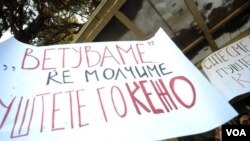 „ВЕТУВАМЕ"
ЌЕ МОЛЧИМЕ
УШТЕТЕ ГО КЕЖО
VOA